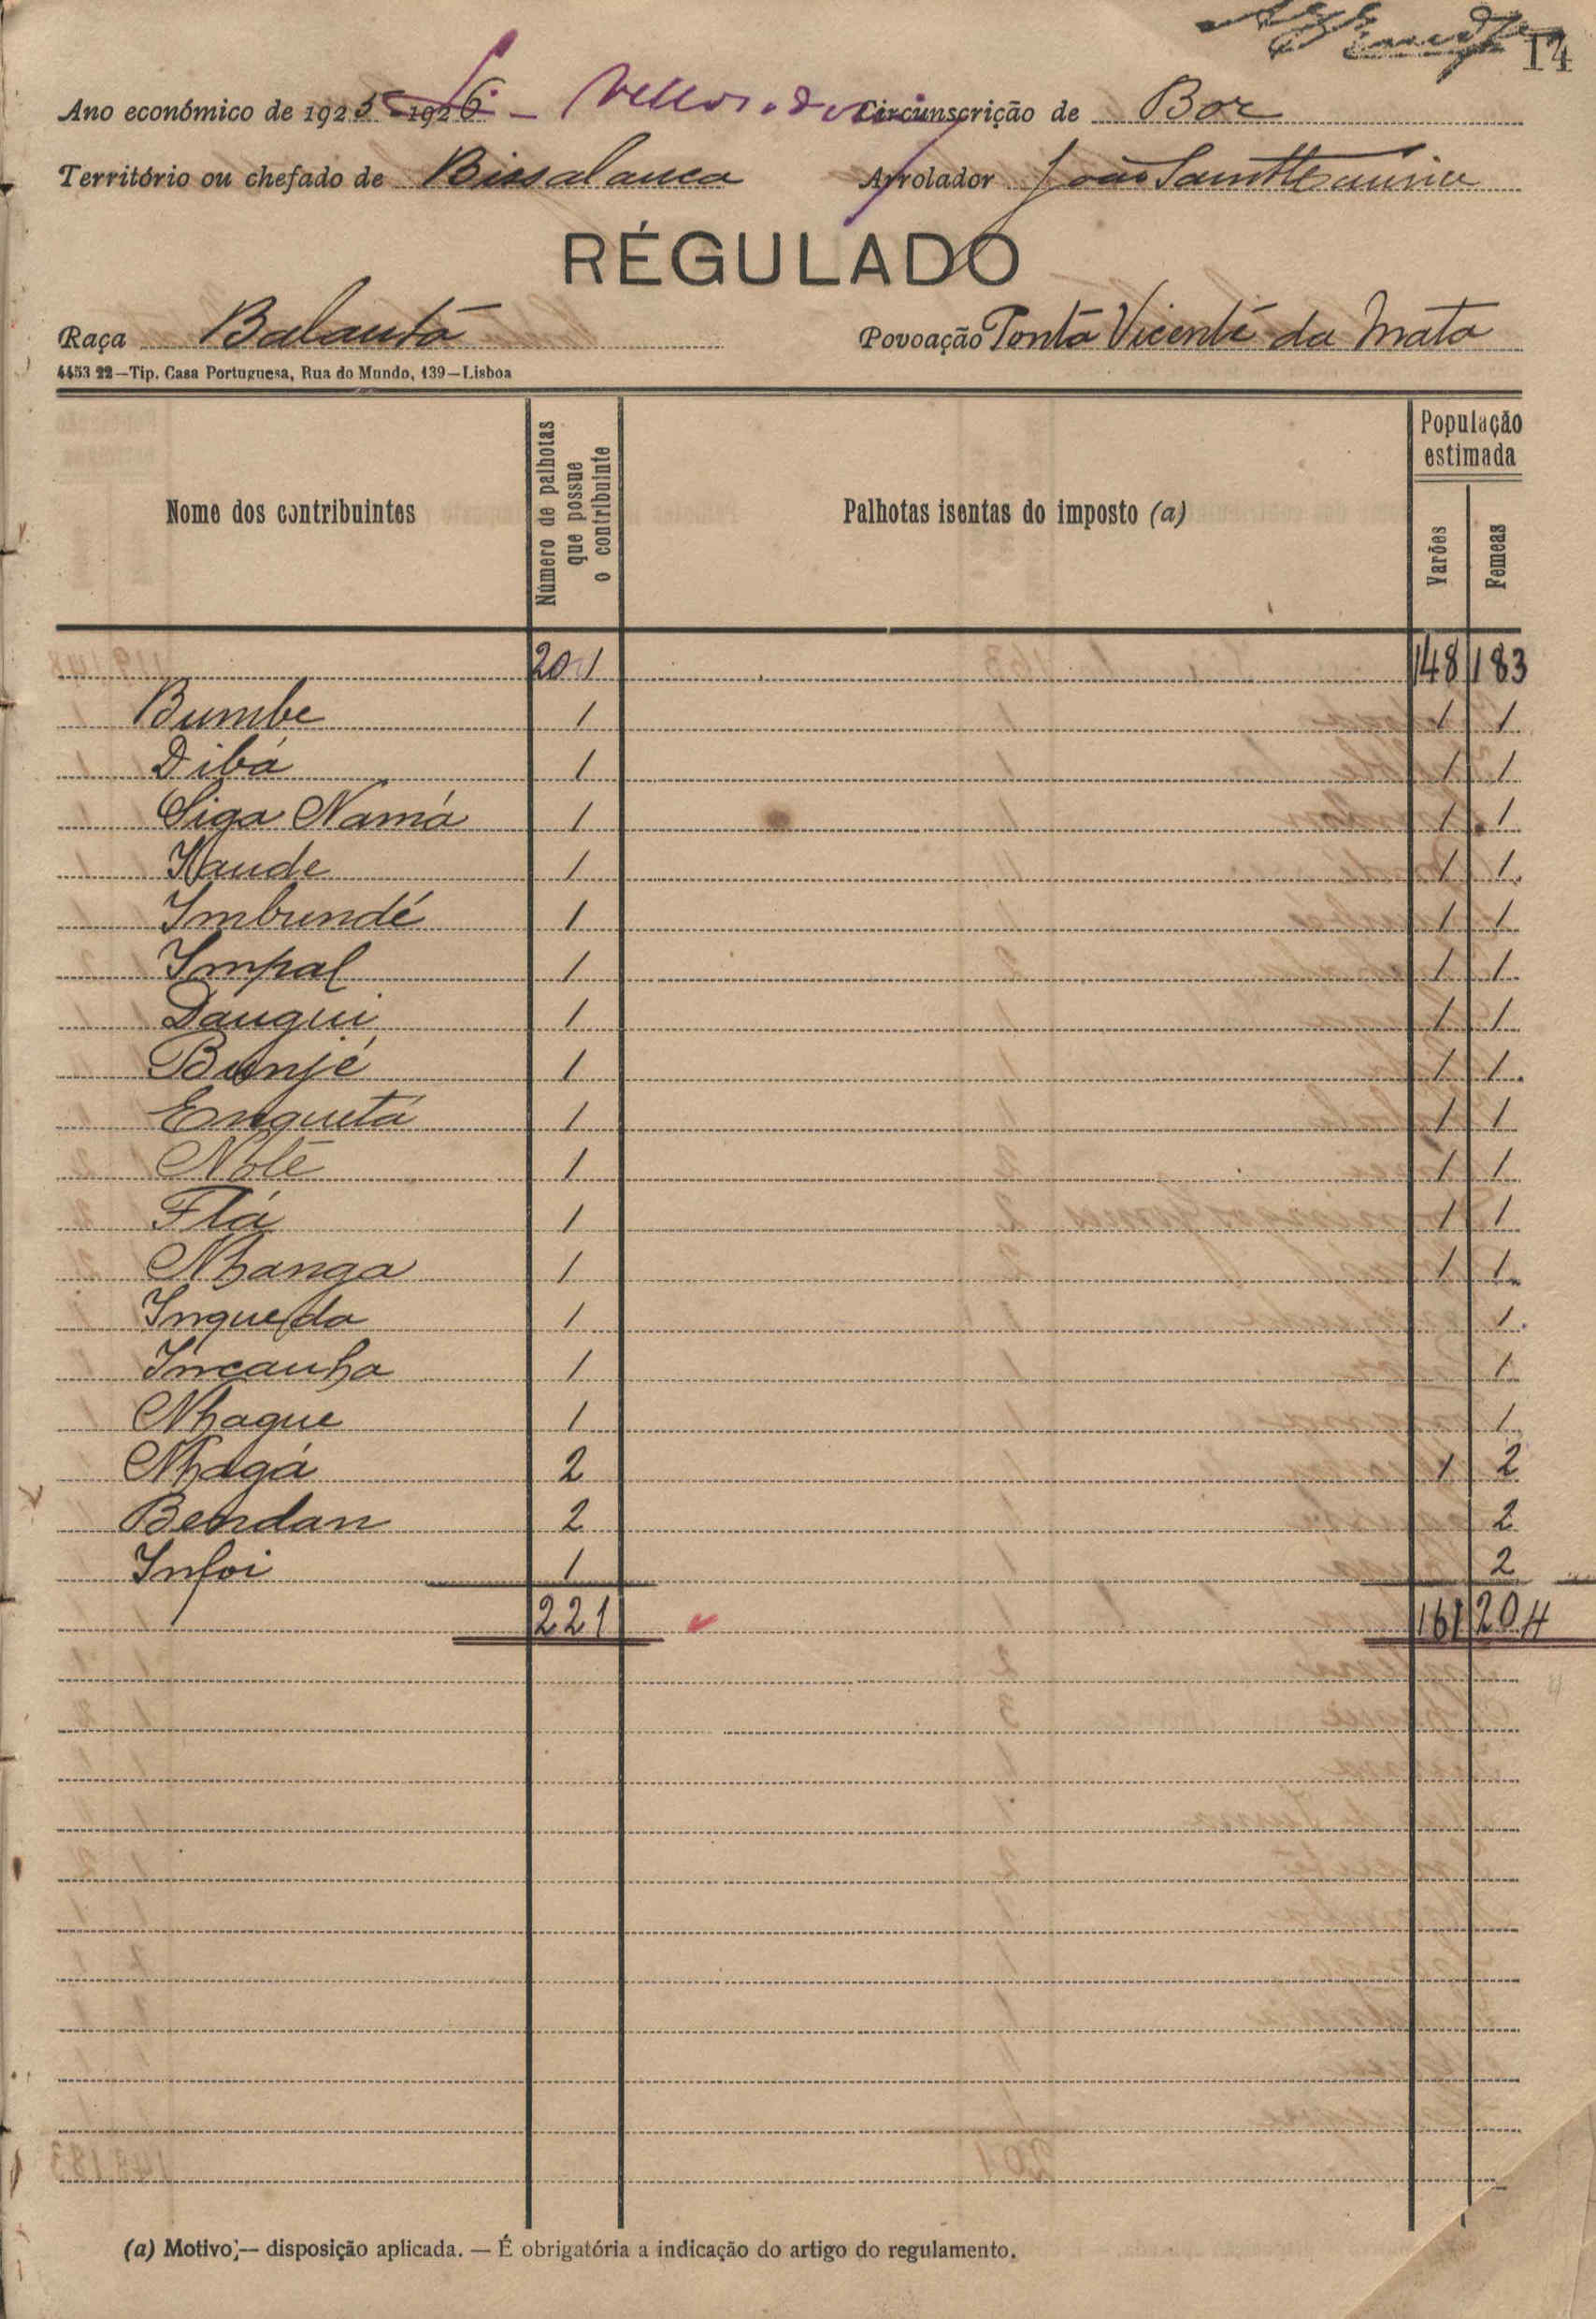 14
Ano económico de 1925-1926 Circunscrição de Bor
Território ou chefado de Bissalanca Arrolador João
RÉGULADO
Raça Balanta Povoação Ponta Vicente da Mata
4453 22—Tip. Casa Portuguesa, Rua do Mundo, 139—Lisboa
Nome dos contribuintes Número de palhotas que possue o contribuinte Palhotas isentas do imposto (a) População estimada Varões Femeas
201 148 183
Bumbe 1 1 1
Dibá 1 1 1
Siga Namá 1 1 1
Naude 1 1 1
Imbundé 1 1 1
Impal 1 1 1
Daugui 1 1 1
Bunjé 1 1 1
Enquetá 1 1 1
Noté 1 1 1
Flá 1 1 1
Nhanga 1 1 1
Inqueda 1 1
Incanha 1 1
Nhague 1 1
Nhagá 2 1 2
Bendan 2 2
Infoi 1 2
221 161 204
(a) Motivo;— disposição aplicada. — É obrigatória a indicação do artigo do regulamento.